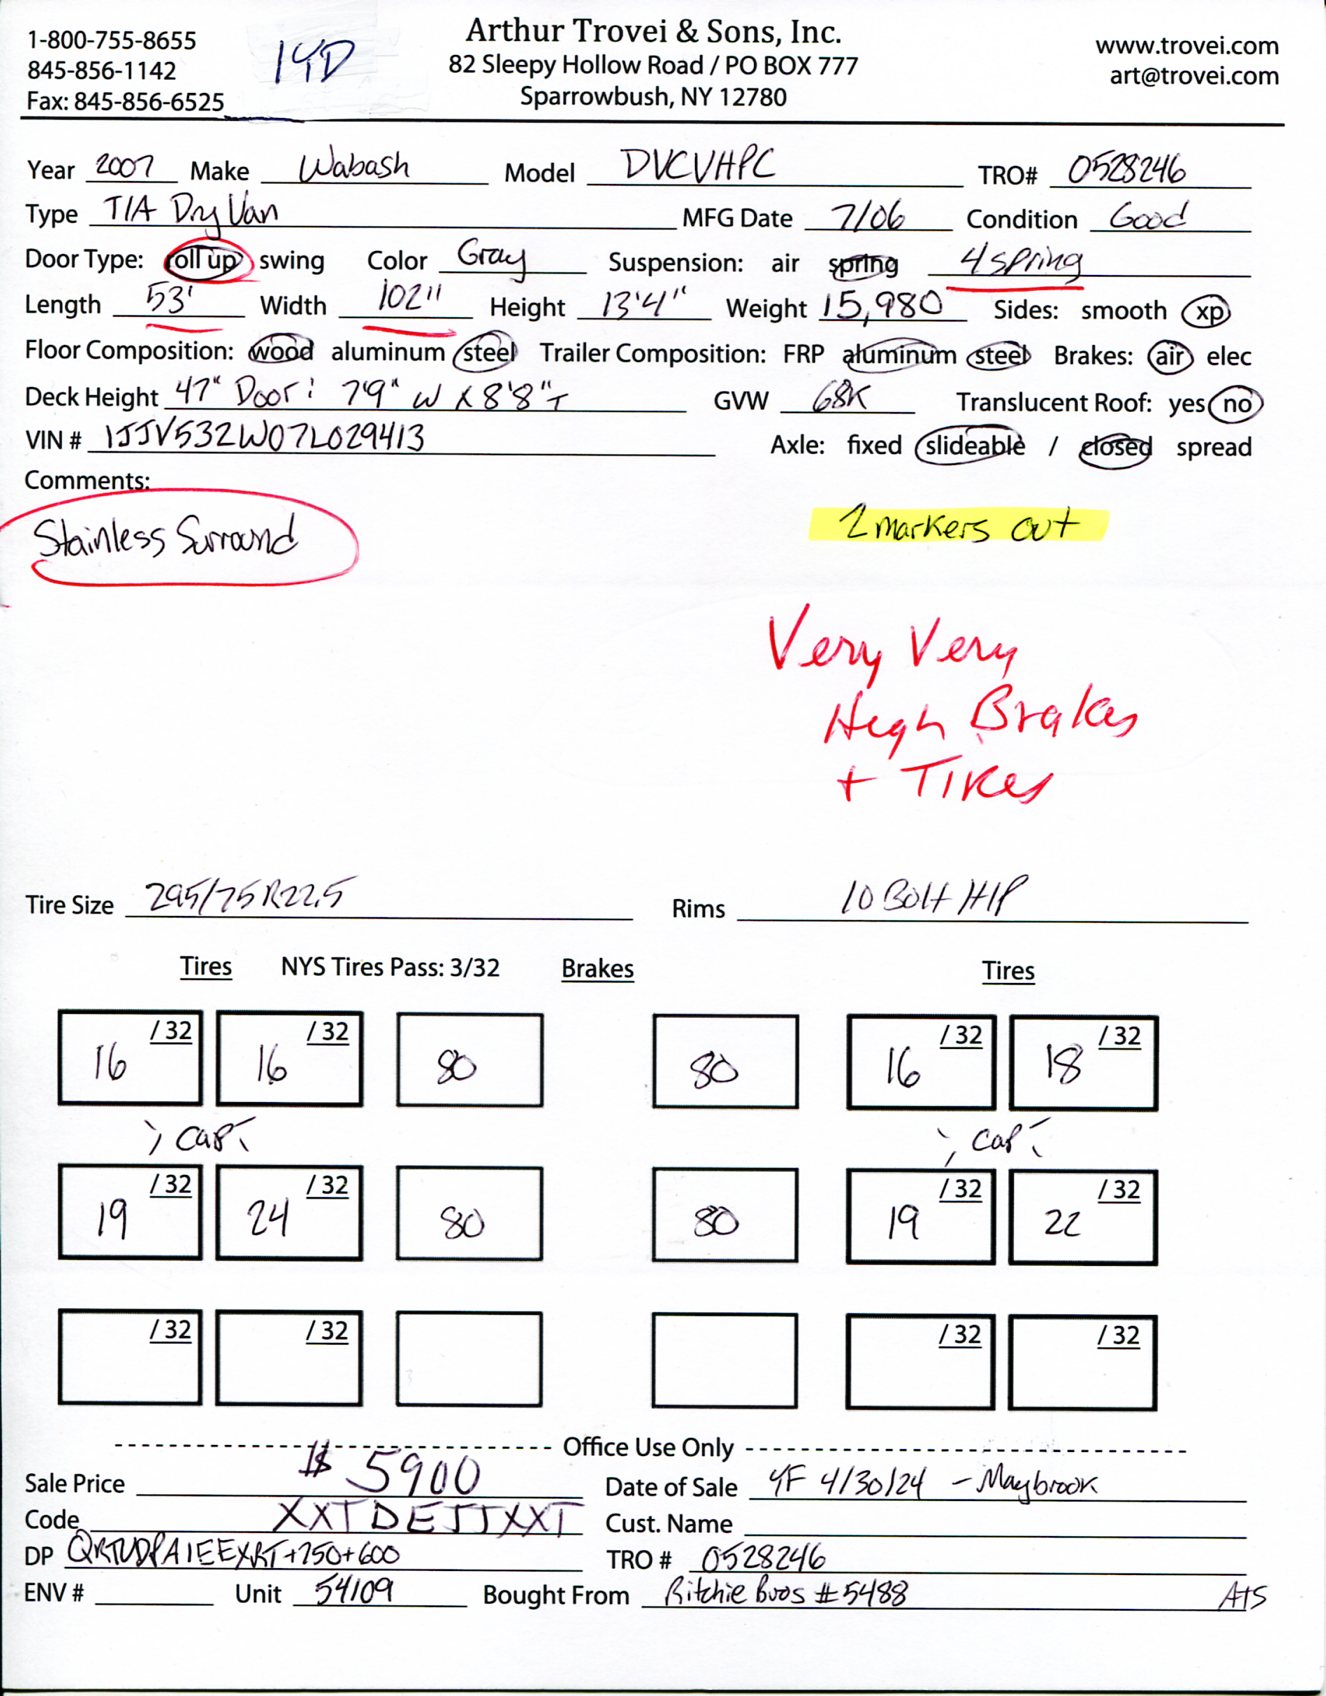 1-800-755-8655
845-856-1142
Fax: 845-856-6525
14D
Arthur Trovei & Sons, Inc.
82 Sleepy Hollow Road / PO BOX 777
Sparrowbush, NY 12780
www.trovei.com
art@trovei.com
Year 2007 Make Wabash Model DVCVHPC TRO# 0528246
Type T/A Dry Van MFG Date 7/06 Condition Good
Door Type: roll up swing Color Gray Suspension: air spring 4 spring
Length 53' Width 102" Height 13'4" Weight 15,980 Sides: smooth xp
Floor Composition: wood aluminum steel Trailer Composition: FRP aluminum steel Brakes: air elec
Deck Height 47" Door: 7'9" W x 8'8" T GVW 68K Translucent Roof: yes no
VIN # 1JJV532W07L029413 Axle: fixed slideable / closed spread
Comments:
Stainless Surround
2 markers out
Very Very
High Brakes
+ Tires
Tire Size 295/75R22.5 Rims 10 Bolt H/P
Tires NYS Tires Pass: 3/32 Brakes Tires
16 /32 16 /32 80 80 16 /32 18 /32
Cap Cap
19 /32 24 /32 80 80 19 /32 22 /32
/32 /32 /32 /32
Office Use Only
Sale Price $ 5900 Date of Sale YF 4/30/24 - Maybrook
Code XXTDEJJXXT Cust. Name
DP +750+600 TRO # 0528246
ENV # Unit 54109 Bought From Ritchie Bros #5488 ATS